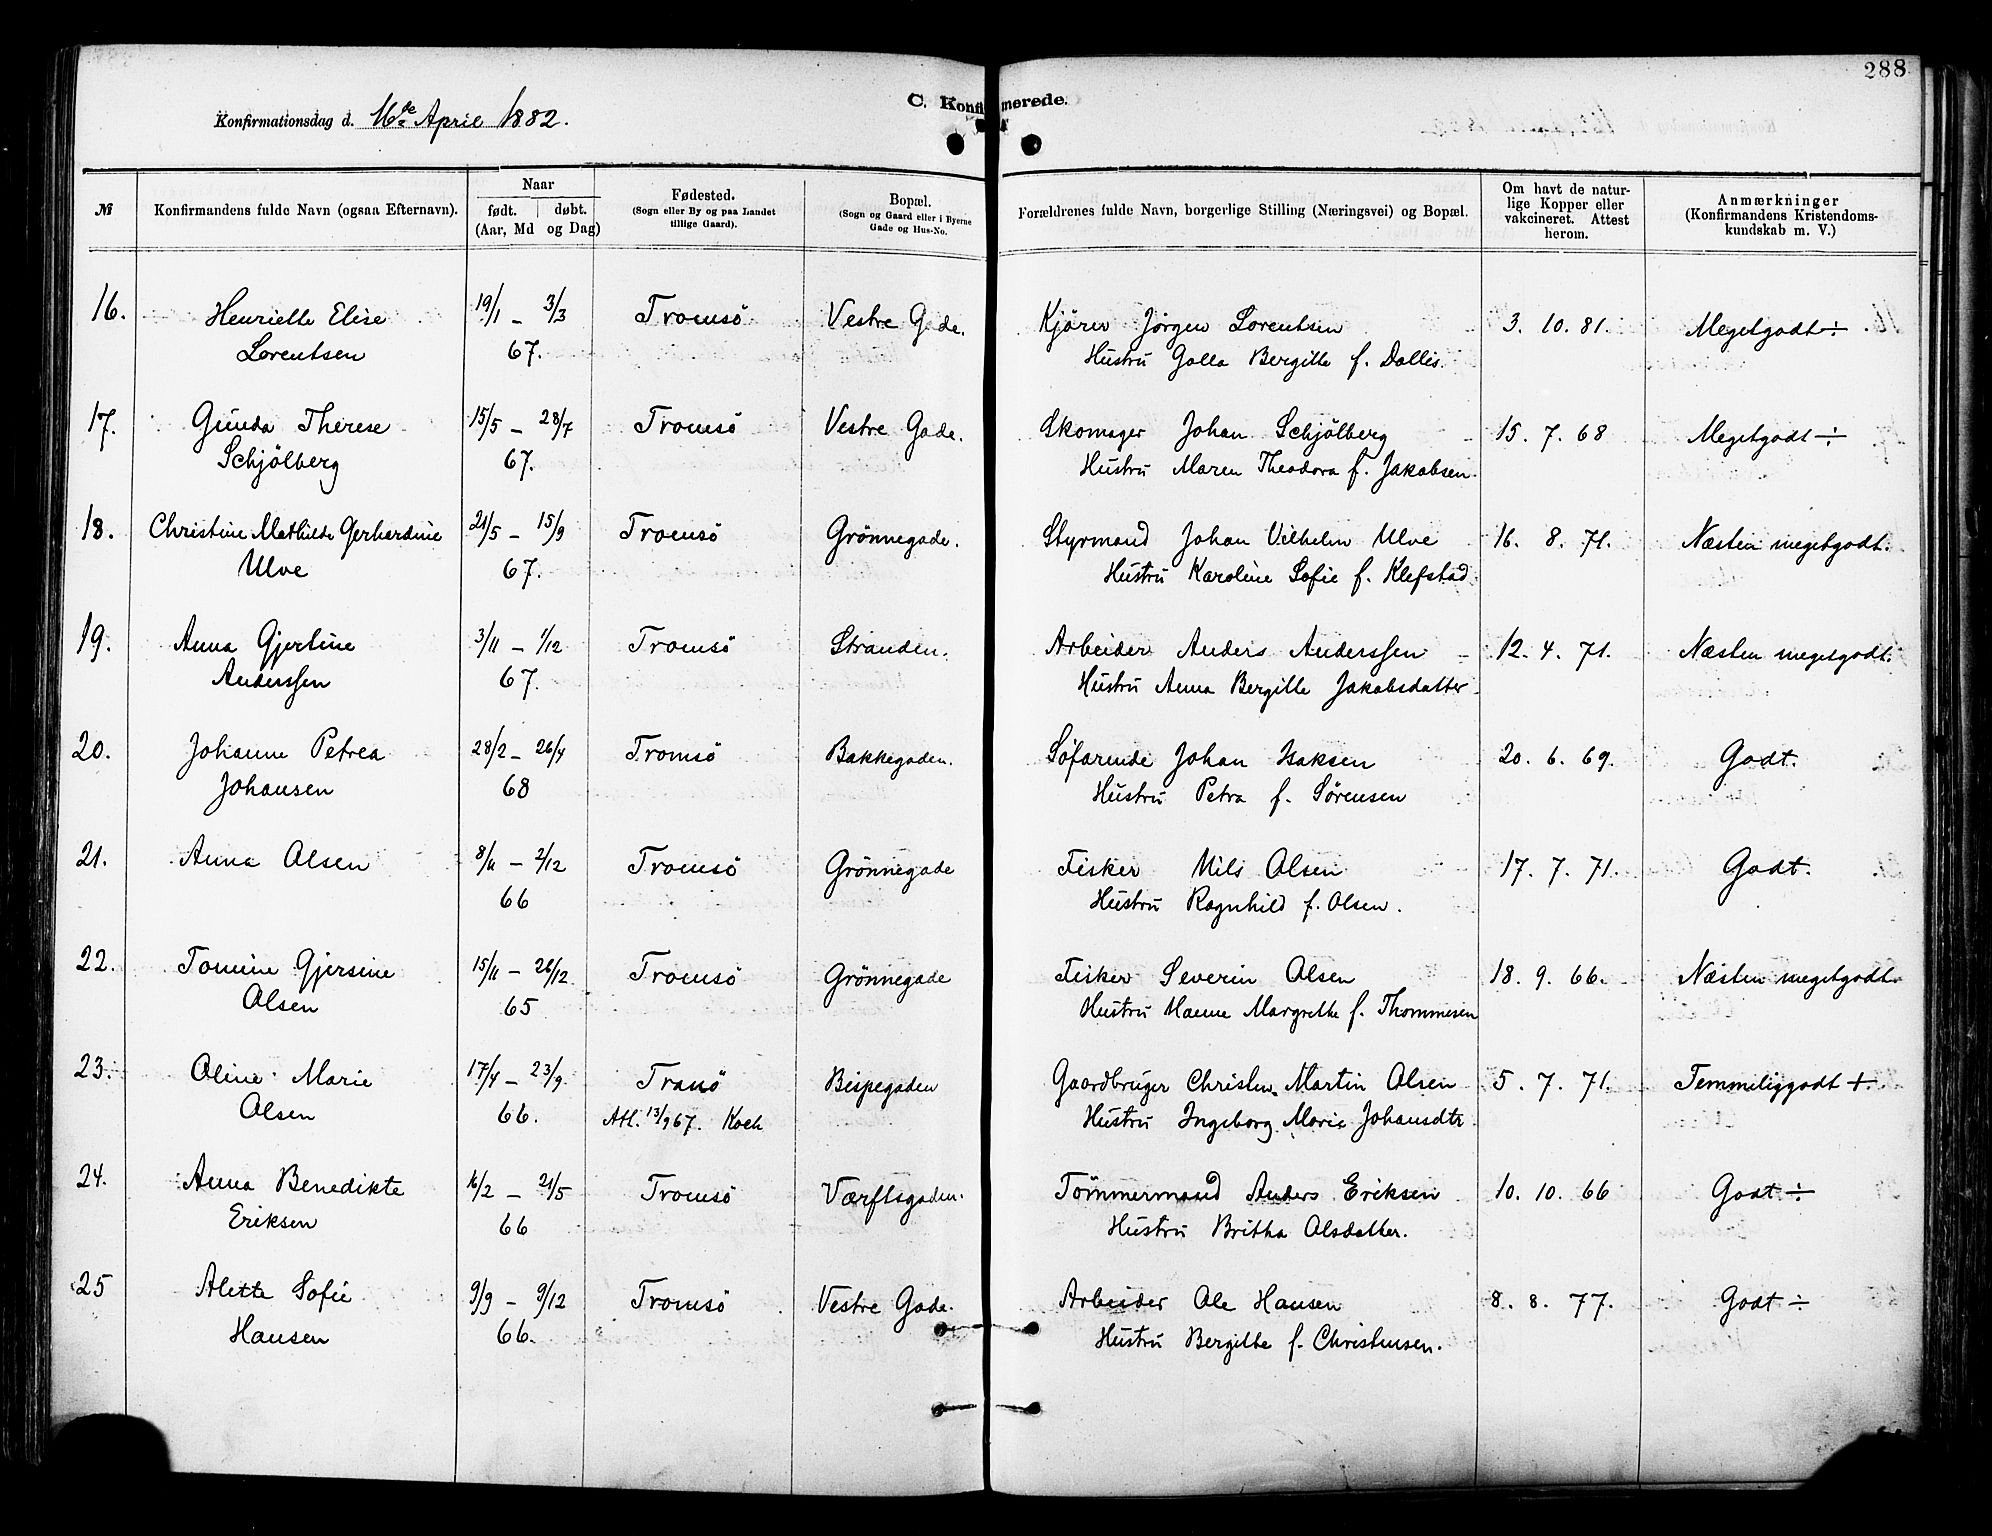 288
C. Konfirmerede.
Konfirmationsdag d. 16de April 1882.
№
Konfirmandens fulde Navn (ogsaa Efternavn).
Naar
født. døbt.
(Aar, Md og Dag)
Fødested.
(Sogn eller By og paa Landet
tillige Gaard).
Bopæl.
(Sogn og Gaard eller i Byerne
Gade og Hus-No.
Forældrenes fulde Navn, borgerlige Stilling (Næringsvei) og Bopæl.
Om havt de natur-
lige Kopper eller
vakcineret. Attest
herom.
Anmærkninger
(Konfirmandens Kristendoms-
kundskab m. V.)
16. Henriette Elise 19/1 – 3/3 Tromsö Vestre Gade. Kjörer Jörgen Lorentsen 3. 10. 81. Megetgodt ÷
Lorentsen 67. Hustru Galla Bergitte f. Dallis.
17. Gunda Therese 15/5 – 28/7 Tromsö Vestre Gade. Skomager Johan Schjölberg 15. 7. 68 Megetgodt ÷
Schjölberg 67. Hustru Maren Theodora f. Jakobsen.
18. Christine Mathilde Gerhardine 21/5 – 15/9 Tromsö Grönnegade. Styrmand Johan Vilhelm Ulve 16. 8. 71. Næsten megetgodt.
Ulve 67. Hustru Karoline Sofie f. Klefstad.
19. Anna Gjertine 3/11 – 1/12 Tromsö Stranden. Arbeider Anders Anderssen 12. 4. 71. Næsten megetgodt.
Anderssen 67. Hustru Anna Bergitte Jakobsdatter
20. Johanne Petrea 28/2 – 26/4 Tromsö Bakkegaden. Söfarende Johan Isaksen 20. 6. 69. Godt.
Johansen 68 Hustru Petra f. Sörensen
21. Anna Olsen 8/11 – 2/12 Tromsö Grönnegade Fisker Nils Olsen 17. 7. 71. Godt.
66 Hustru Ragnhild f. Olsen.
22. Tomine Gjersine 15/11 – 26/12 Tromsö Grönnegade Fisker Severin Olsen 18. 9. 66. Næsten megetgodt
Olsen 65 Hustru Hanne Margrethe f. Thommesen
23. Oline Marie 17/4 – 23/9 Tranö Bispegaden Gaardbruger Christen Martin Olsen 5. 7. 71. Temmeliggodt +
Olsen 66. Att. 13/9 67. Koch Hustru Ingeborg Marie Johansdtr.
24. Anna Benedikte 16/2 – 21/5 Tromsö Værftsgaden. Tömmermand Anders Eriksen 10. 10. 66 Godt ÷
Eriksen 66 Hustru Britha Olsdatter.
25 Alette Sofie 9/9 – 9/12 Tromsö Vestre Gade. Arbeider Ole Hansen 8. 8. 77. Godt ÷
Hansen 66. Hustru Bergitte f. Christensen.